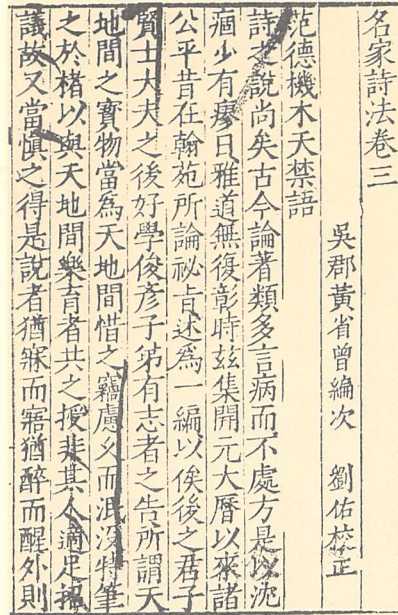 名家詩法卷三
吳郡黃省曾編次　劉佑校正
范德機木天禁語
詩之說尚矣古今論著類多言病而不處方是以沈
痼少有瘳日雅道無復彰時茲集開元大曆以來諸
公平昔在翰苑所論祕旨述爲一編以俟後之君子
賢士大夫之後好學俊彥子弟有志者之告所謂天
地間之寶物當爲天地間惜之竊慮久而泯沒特筆
之於楮以與天地間樂育者共之授非其人適足招
議故又當慎之得是說者猶寐而寤猶醉而醒外則